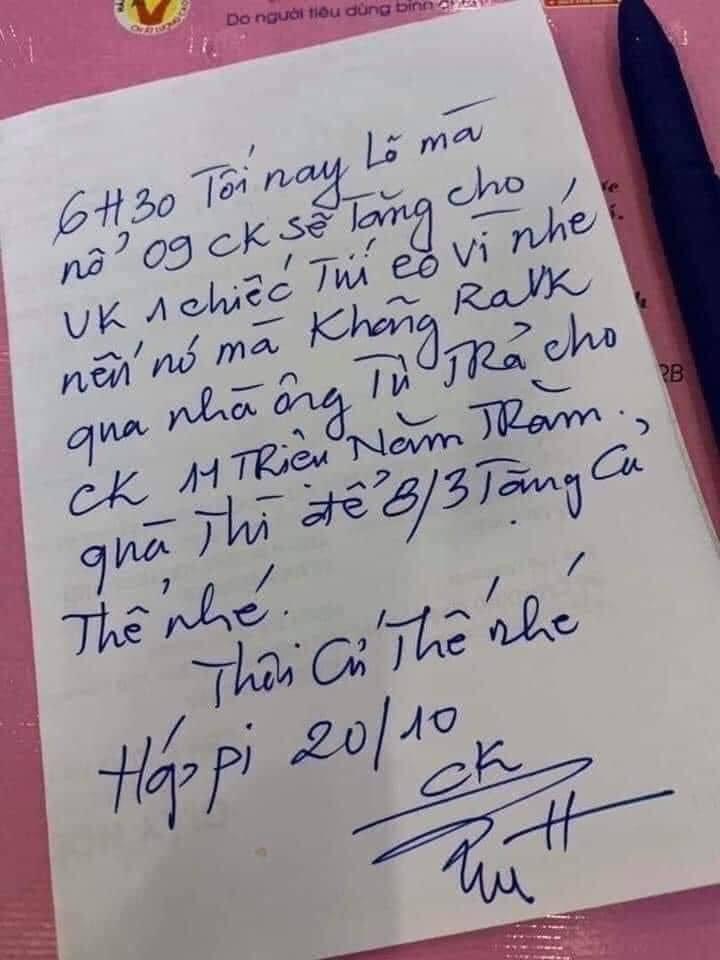 Do người tiêu dùng bình chọn
6H30 Tối nay Lõ mà
nổ 09 CK sẽ Tặng cho
VK 1 chiếc Túi eo Vì nhé
nến nó mà Không Ra VK
qua nhà ông Tú Trả cho
CK 11 Triệu Năm Trăm.
quà Thì để 8/3 Tặng Cụ
Thể nhé.
Thôi Cứ Thế nhé
Háppi 20/10
CK
2B